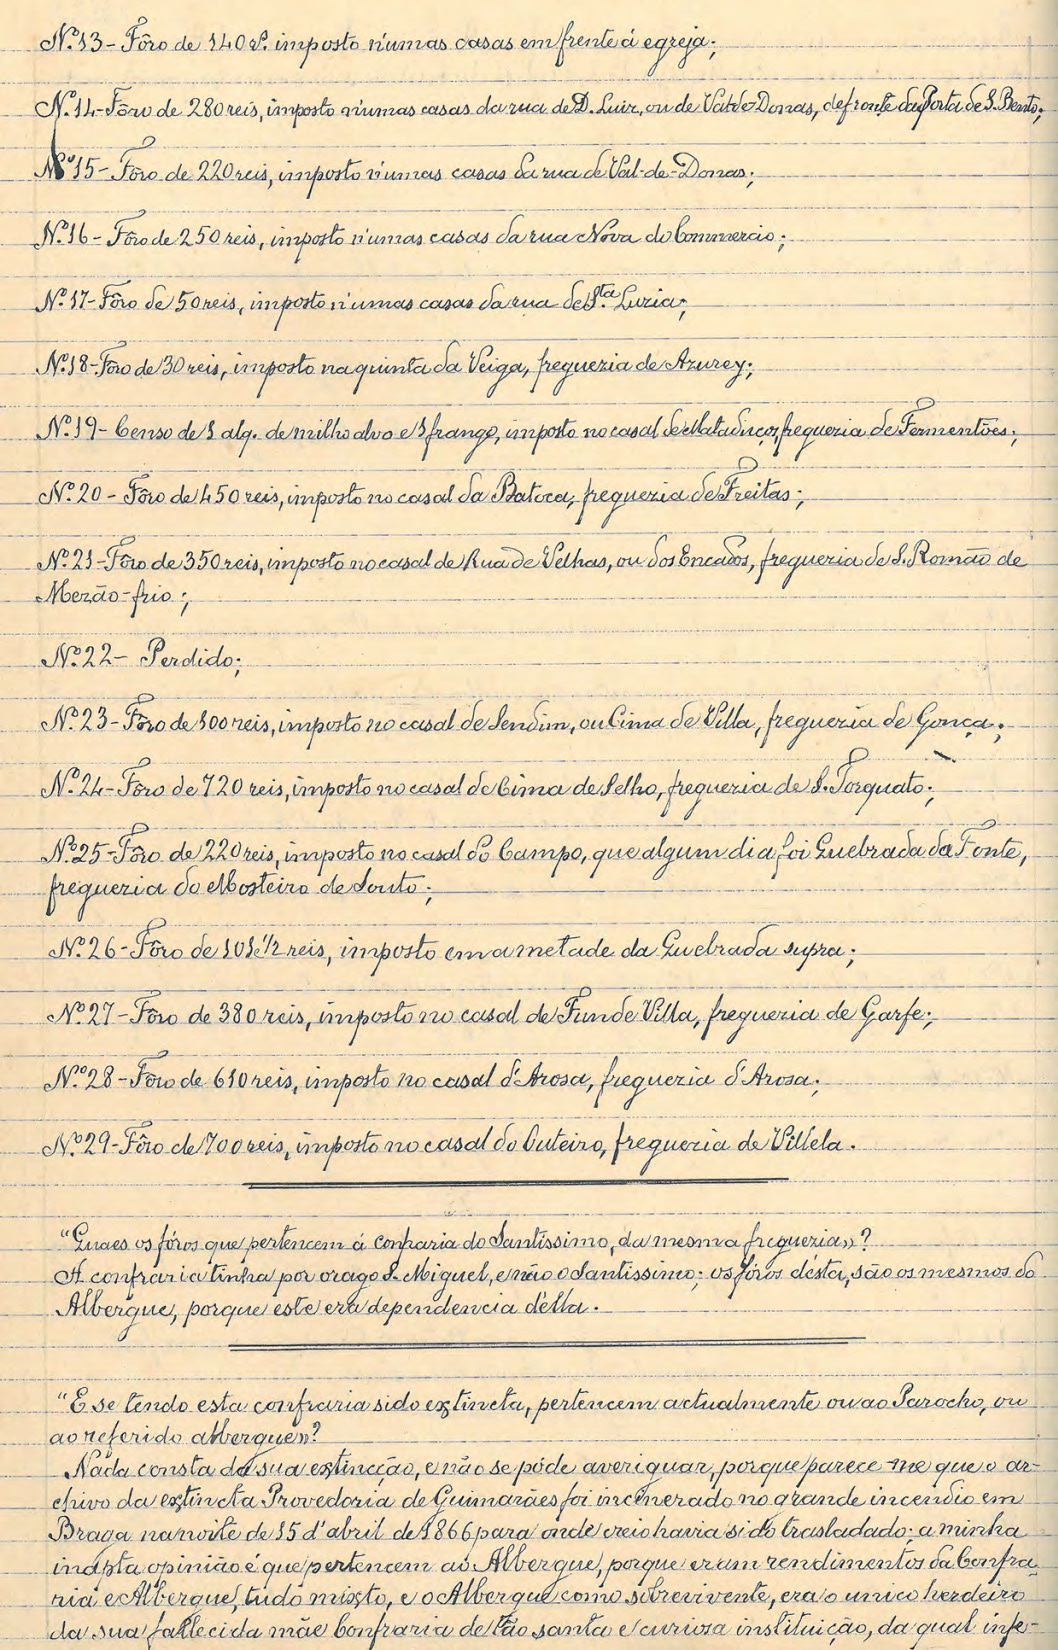 Nº.13- Fôro de 140 rs. imposto n'umas casas em frente á egreja;
Nº.14- Fôro de 280 reis, imposto n'umas casas da rua de D. Luiz, ou de Val-de-Donas, defronte da Porta de S. Bento;
Nº 15- Fôro de 220 reis, imposto n'umas casas da rua de Val-de-Donas;
Nº.16- Fôro de 250 reis, imposto n'umas casas da rua Nova do Commercio;
Nº.17- Fôro de 50 reis, imposto n'umas casas da rua de Sta Luzia;
Nº.18- Fôro de 30 reis, imposto na quinta da Veiga, freguezia de Azurey;
Nº.19- Censo de 1 alq. de milho alvo e 1 frango, imposto no casal de Mataduços, freguezia de Fermentões;
Nº.20- Fôro de 450 reis, imposto no casal da Batoca, freguezia de Freitas;
Nº.21- Fôro de 350 reis, imposto no casal de Rua de Velhas, ou dos Encados, freguezia de S. Romão de
Mezão-frio;
Nº.22- Perdido;
Nº.23- Fôro de 100 reis, imposto no casal de Sendim, ou Cima de Villa, freguezia de Gonça;
Nº.24- Fôro de 720 reis, imposto no casal de Cima de Selho, freguezia de S. Torquato;
Nº.25- Fôro de 220 reis, imposto no casal do Campo, que algum dia foi Quebrada da Fonte,
freguezia do Mosteiro de Souto;
Nº.26- Fôro de 101 e 1/2 reis, imposto em a metade da Quebrada supra;
Nº.27- Fôro de 380 reis, imposto no casal de Fundevilla, freguezia de Garfe;
Nº.28- Fôro de 610 reis, imposto no casal d'Arosa, freguezia d'Arosa;
Nº.29- Fôro de 700 reis, imposto no casal do Outeiro, freguezia de Villela.
"Quaes os fóros que pertencem á Confraria do Santissimo, da mesma freguezia»?
A confraria tinha por orago S. Miguel, e não o Santissimo; os fóros désta, são os mesmos do
Albergue, porque este era dependencia d'ella.
"E se tendo esta confraria sido extincta, pertencem actualmente ou ao Parocho, ou
ao referido albergue»?
Nada consta da sua extincção, e não se póde averiguar, porque parece-me que o ar-
chivo da extincta Provedoria de Guimarães foi incinerado no grande incendio em
Braga na noite de 15 d'abril de 1866 para onde creio havia sido trasladado; a minha
inapta opinião é que pertencem ao Albergue, porque eram rendimentos da Confra-
ria e Albergue, tudo mixto, e o Albergue como sobrevivente, era o unico herdeiro
da sua fallecida mãe Confraria de tão santa e curiosa instituição, da qual infe-